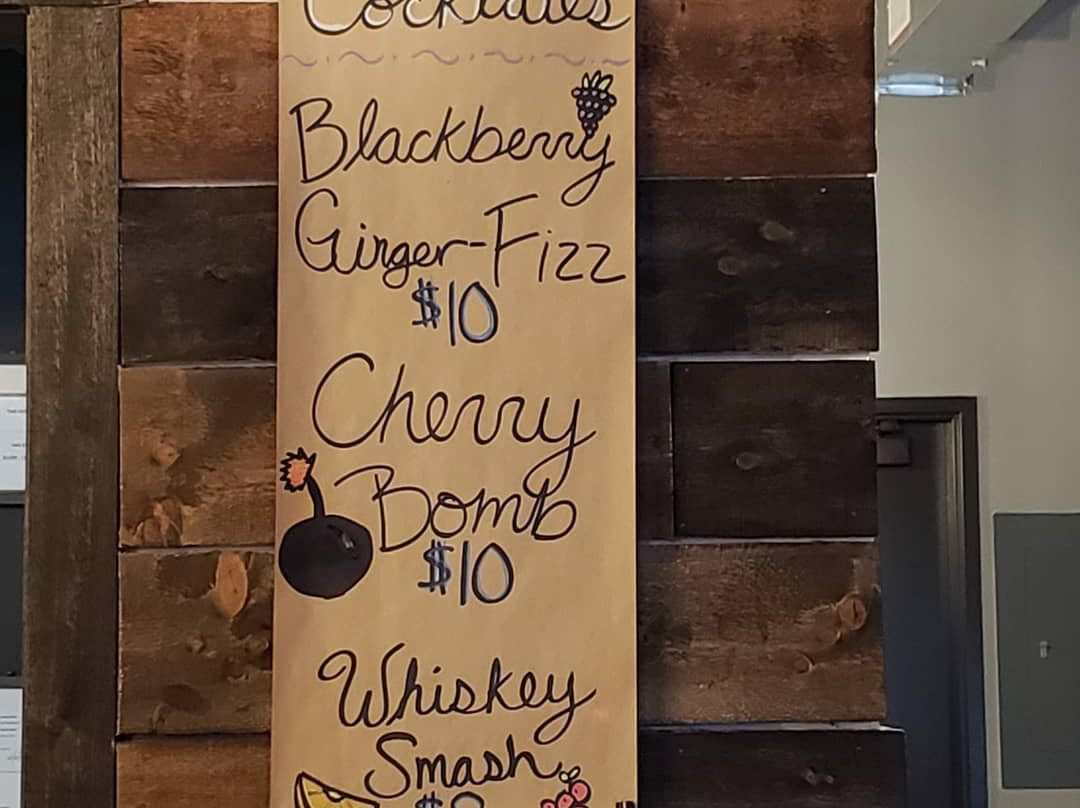 Cocktails
Blackberry
Ginger-Fizz
$10
Cherry
Bomb
$10
Whiskey
Smash